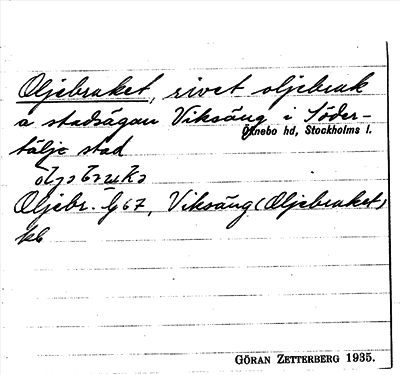 Oljebruket, rivet oljebruk
a stadsägan Viksäng i Söder-
Öknebo hd, Stockholms l.
tälje stad
Oljebr. G 67, Viksäng (Oljebruket)
kb
GÖRAN ZETTERBERG 1935.